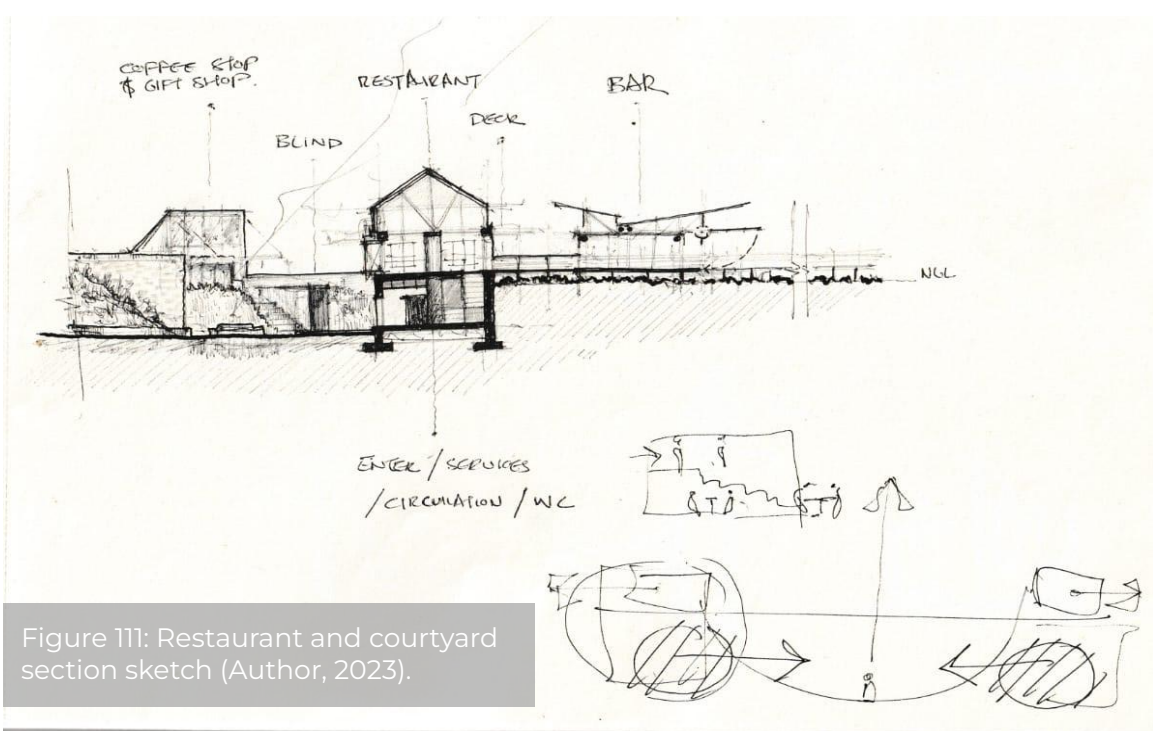 COFFEE STOP
& GIFT SHOP.
BLIND
RESTAURANT
DECK
BAR
NGL
ENTER / SERVICES
/ CIRCULATION / WC
Figure 111: Restaurant and courtyard
section sketch (Author, 2023).